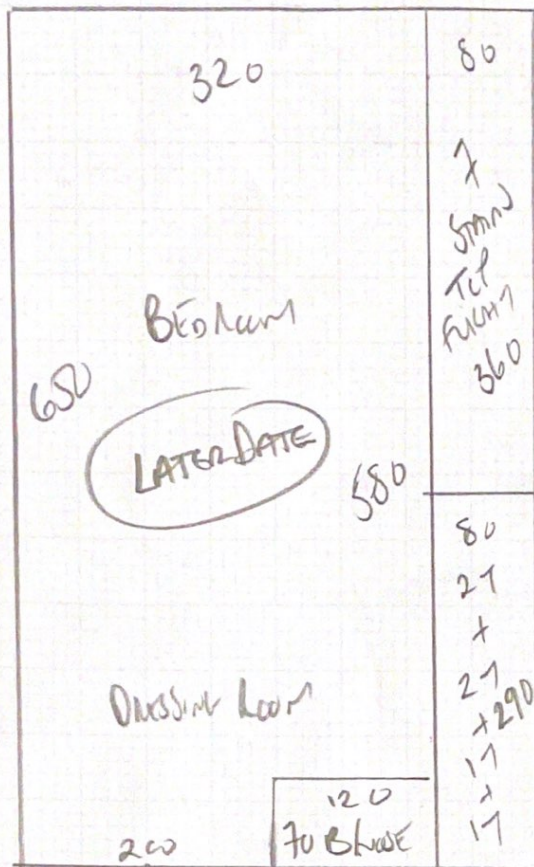 320
80
7
STAIRS
TOP
FLIGHT
360
BEDROOM
650
LATER DATE
580
80
27
+
27
+290
17
+
17
DRESSING ROOM
120
200